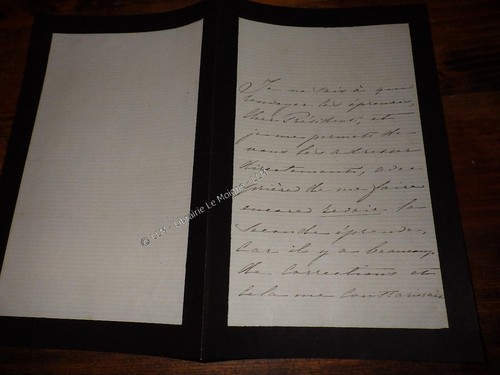 Je ne sais à qui
renvoyer les épreuves,
cher Président, et
je me permets de
vous les adresser
directement, avec
prière de me faire
encore revoir la
seconde épreuve,
car il y a beaucoup
de corrections et
cela me
© LLM - Librairie Le Moigne - LLM